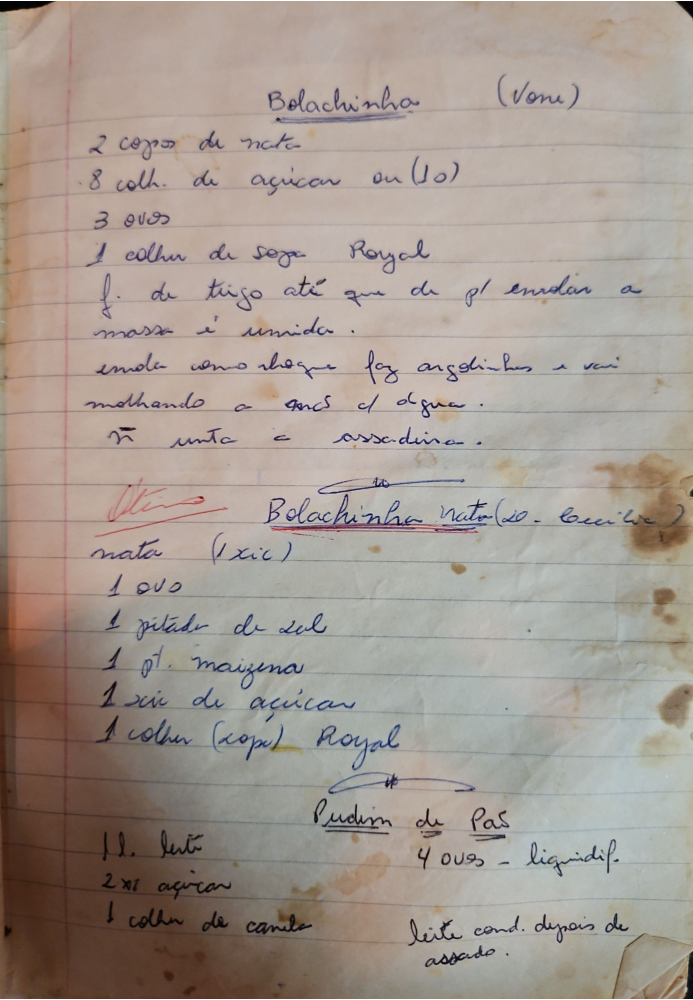 Bolachinha (Vone)
2 copos de nata
8 colh. de açúcar ou (10)
3 ovos
1 colher de sopa Royal
f. de trigo até que de p/ enrolar a
massa é umida.
enrola como nhoque faz argolinhas e vai
molhando a mão c/ água.
ñ unta a assadeira.
Ótimo Bolachinha nata (D. Cecilia)
nata (1 xic)
1 ovo
1 pitada de sal
1 pt. maizena
1 xic de açúcar
1 colher (sopa) Royal
Pudim de Pão
1 l. leite 4 ovos - liquidif.
2 xi açúcar
1 colher de canela leite cond. depois de
assado.